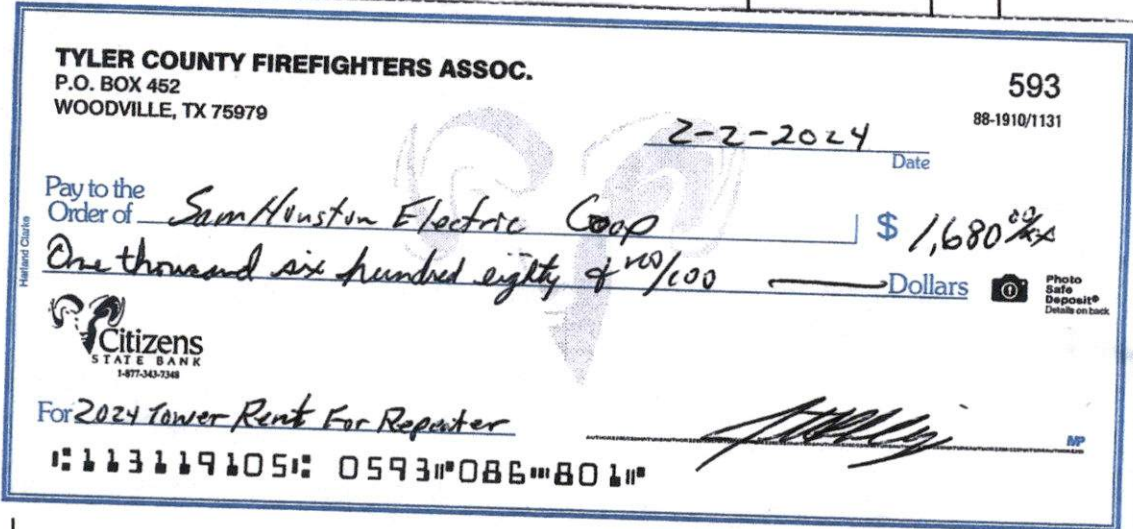 TYLER COUNTY FIREFIGHTERS ASSOC.
P.O. BOX 452
WOODVILLE, TX 75979
593
88-1910/1131
2-2-2024
Date
Pay to the
Order of Sam Houston Electric Coop $ 1,680 00/xx
One thousand six hundred eighty & no/100 Dollars
Photo
Safe
Deposit®
Details on back
Harland Clarke
Citizens
STATE BANK
1-877-343-7348
For 2024 Tower Rent For Repeater
MP
⑆113119105⑆ 0593⑈086⑉801⑈